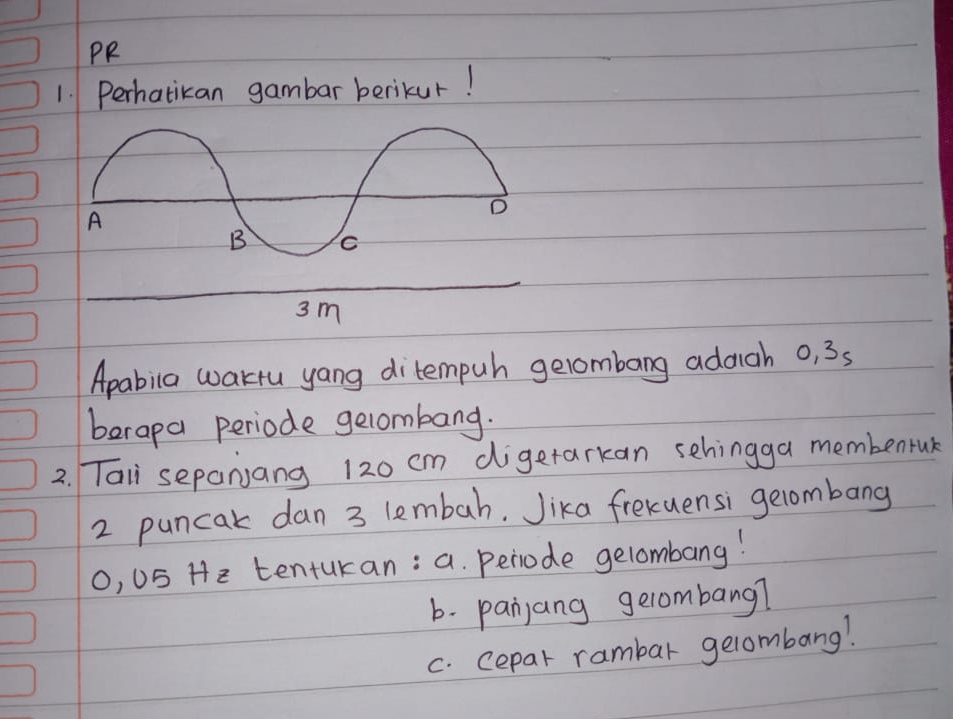 PR
1. Perhatikan gambar berikut!
A
B
C
D
3 m
Apabila waktu yang ditempuh gelombang adalah 0,3s
berapa periode gelombang.
2. Tali sepanjang 120 cm digetarkan sehingga membentuk
2 puncak dan 3 lembah. Jika frekuensi gelombang
0,05 Hz tentukan : a. periode gelombang!
b. panjang gelombang!
c. cepat rambat gelombang!